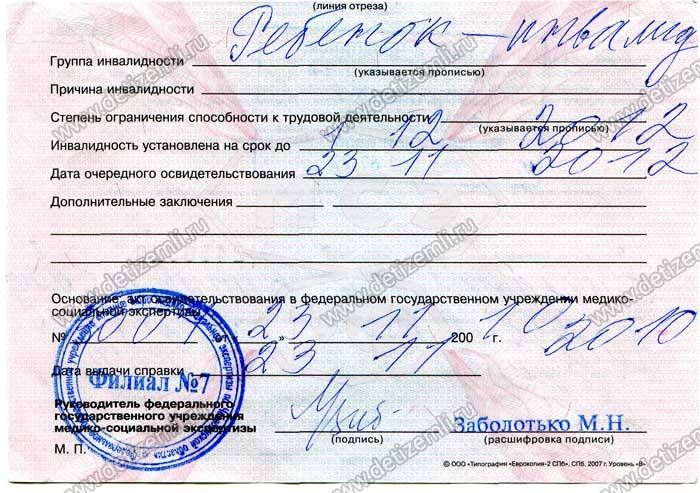 (линия отреза)
Группа инвалидности Ребенок – инвалид
(указывается прописью)
Причина инвалидности
Степень ограничения способности к трудовой деятельности
(указывается прописью)
Инвалидность установлена на срок до 1 12 2012
Дата очередного освидетельствования 23 11 2012
Дополнительные заключения
Основание: акт освидетельствования в федеральном государственном учреждении медико-
социальной экспертизы
№ от « 23 » 11 200 10 г.
Дата выдачи справки 23 11 2010
Филиал №7
Руководитель федерального
государственного учреждения
медико-социальной экспертизы Заболотько М.Н.
(подпись) (расшифровка подписи)
М. П.
© ООО «Типография «Еврокопия-2 СПб». СПб. 2007 г. Уровень «В»
www.detizemli.ru